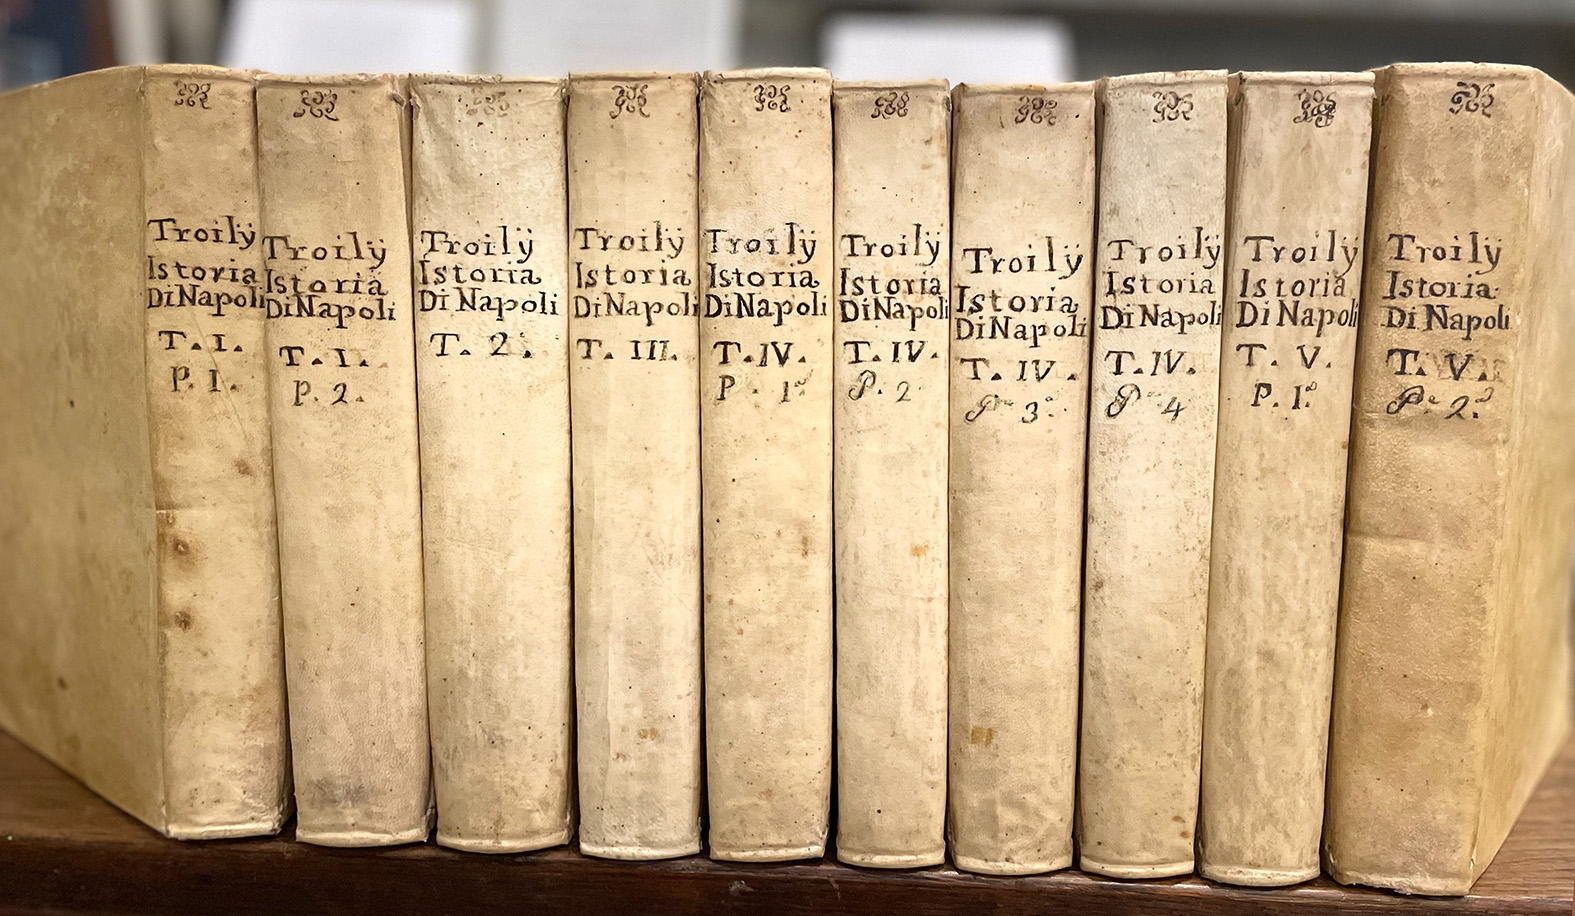 Troilÿ
Istoria
Di Napoli
T. I.
P. I.
Troilÿ
Istoria
Di Napoli
T. I.
P. 2.
Troilÿ
Istoria
Di Napoli
T. 2.
Troilÿ
Istoria
Di Napoli
T. III.
Troilÿ
Istoria
Di Napoli
T. IV.
P. 1.ª
Troilÿ
Istoria
Di Napoli
T. IV.
P. 2
Troilÿ
Istoria
Di Napoli
T. IV.
P.e 3.ª
Troilÿ
Istoria
Di Napoli
T. IV.
P.e 4
Troilÿ
Istoria
Di Napoli
T. V.
P. I.ª
Troilÿ
Istoria
Di Napoli
T. V.
P.e 2.ª